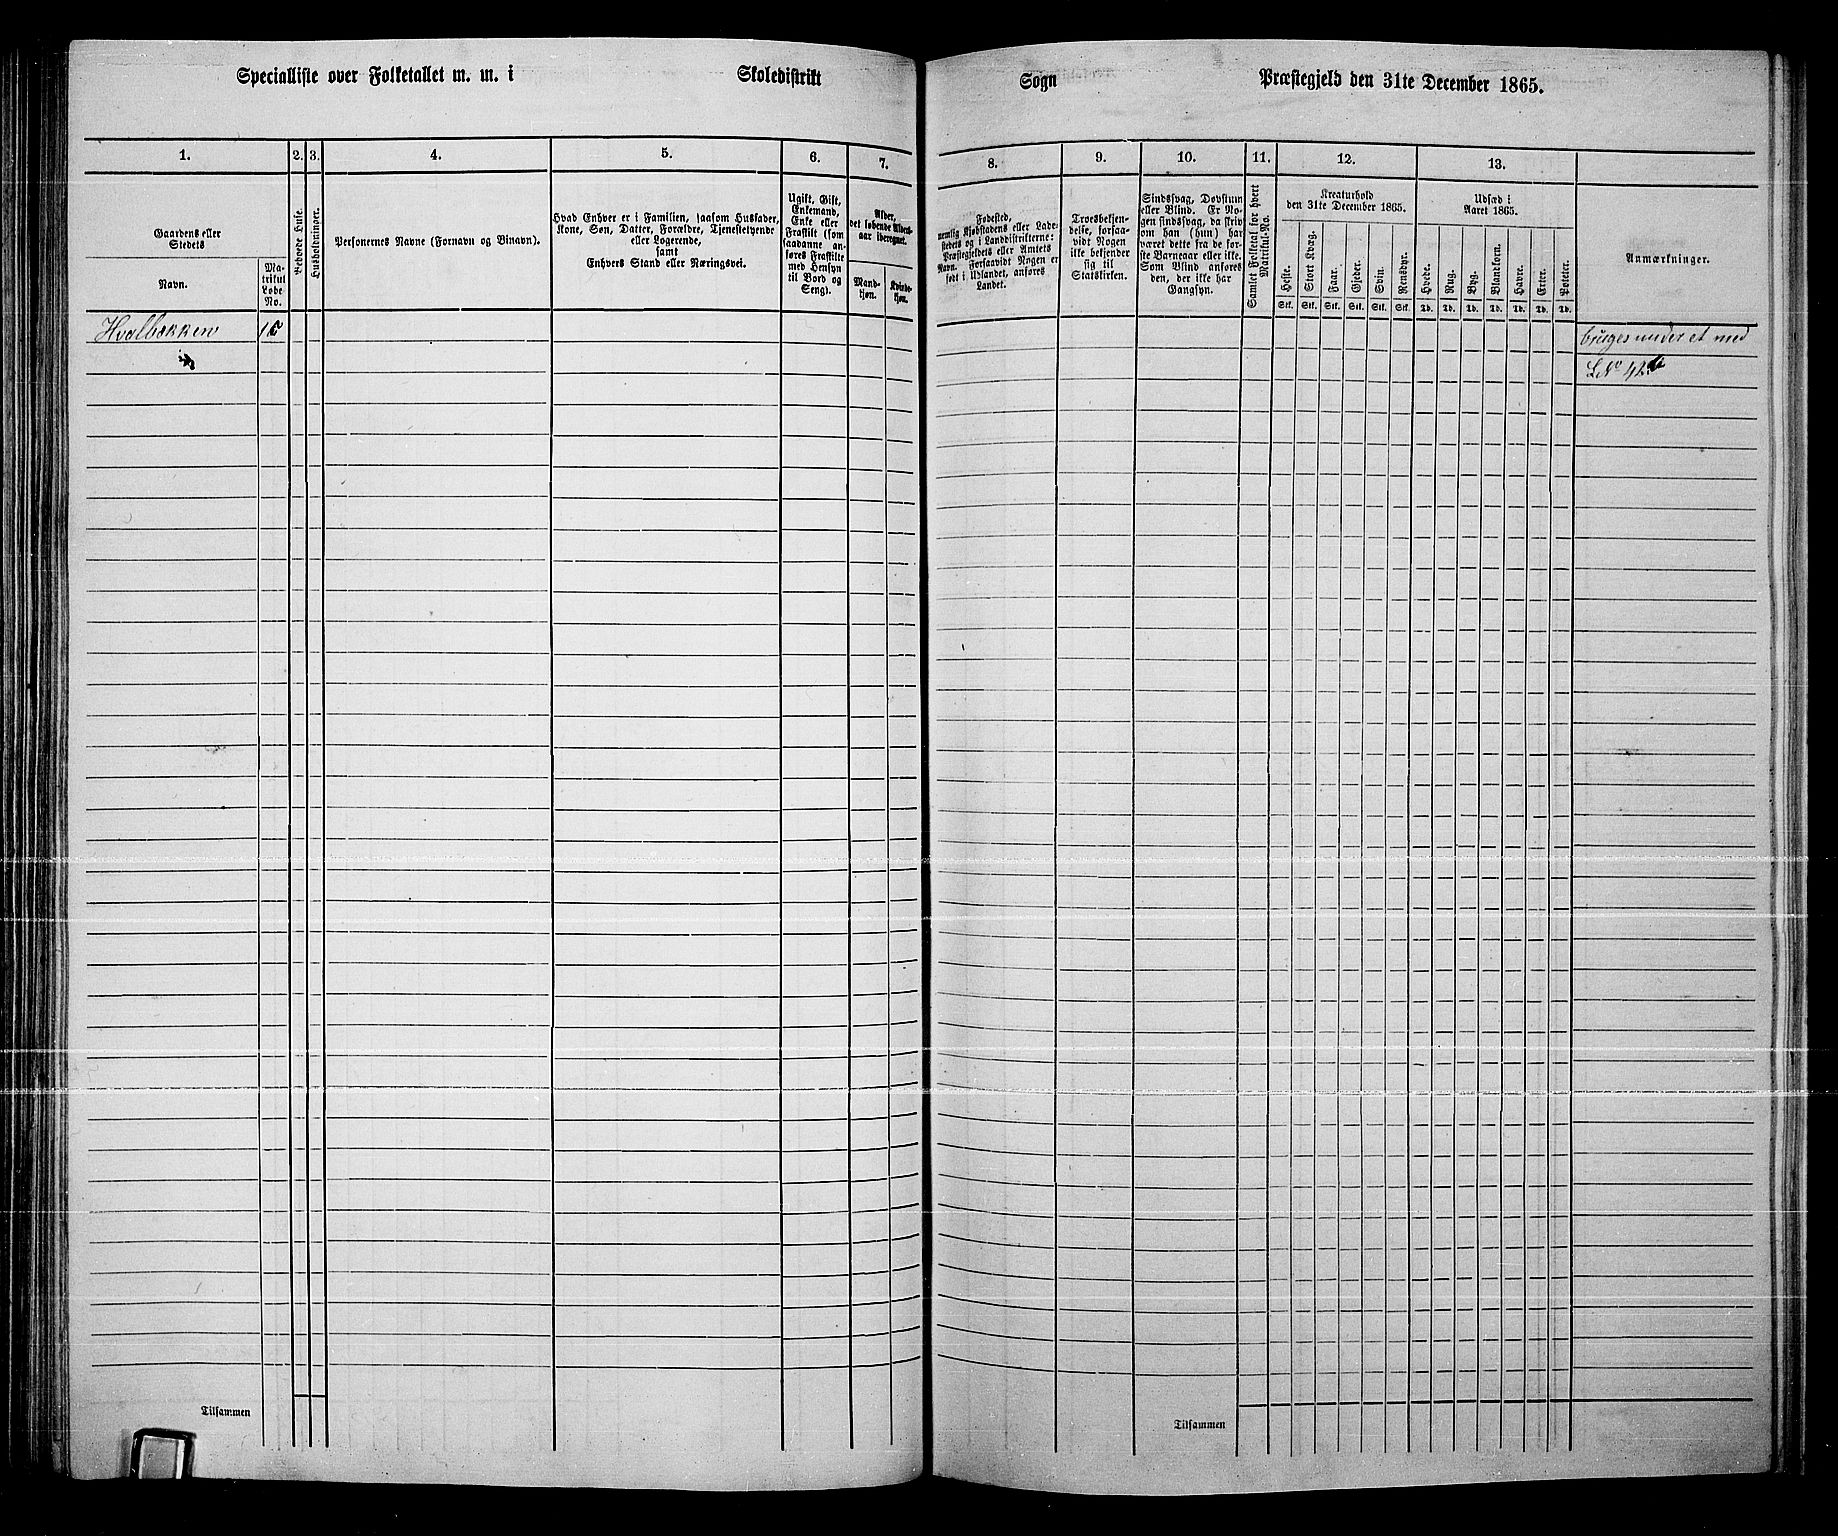 Specialliste over Folketallet m. m. i Skoledistrikt Sogn Præstegjeld den 31te December 1865.
1. 2. 3. 4. 5. 6. 7. 8. 9. 10. 11. 12. 13.
Gaardens eller
Stedets
Navn.
Ma-
trikul
Løbe
No.
Beboede Huse.
Husholdninger.
Personernes Navne (Fornavn og Binavn).
Hvad Enhver er i Familien, saasom Husfader,
Kone, Søn, Datter, Forældre, Tjenestetyende
eller Logerende,
samt
Enhvers Stand eller Næringsvei.
Ugift, Gift,
Enkemand,
Enke eller
Fraskilt (som
saadanne an-
føres Fraskilte
med Hensyn
til Bord og
Seng).
Alder,
det løbende Alders-
aar iberegnet.
Mand-
kjøn.
Kvinde-
kjøn.
Fødested,
nemlig Kjøbstadens eller Lade-
stedets og i Landdistrikterne:
Præstegjeldets eller Amtets
Navn. Forsaavidt Nogen er
født i Udlandet, anføres
Landet.
Troesbekjen-
delse, forsaa-
vidt Nogen
ikke bekjender
sig til
Statskirken.
Sindssvag, Døvstum
eller Blind. Er No-
gen sindssvag, da skriv
om han (hun) har
været dette fra de før-
ste Barneaar eller ikke.
Som Blind anføres
den, der ikke har
Gangsyn.
Samlet Folketal for hvert
Matrikul-No.
Kreaturhold
den 31te December 1865.
Heste. Stort Kvæg. Faar. Gjeder. Svin. Rensdyr.
Stk. Stk. Stk. Stk. Stk. Stk.
Udsæd i
Aaret 1865.
Hvede. Rug. Byg. Blandkorn. Havre. Erter. Poteter.
Td. Td. Td. Td. Td. Td. Td.
Anmærkninger.
Hvalbakken
bruges under et med
L No 42
Tilsammen
Tilsammen